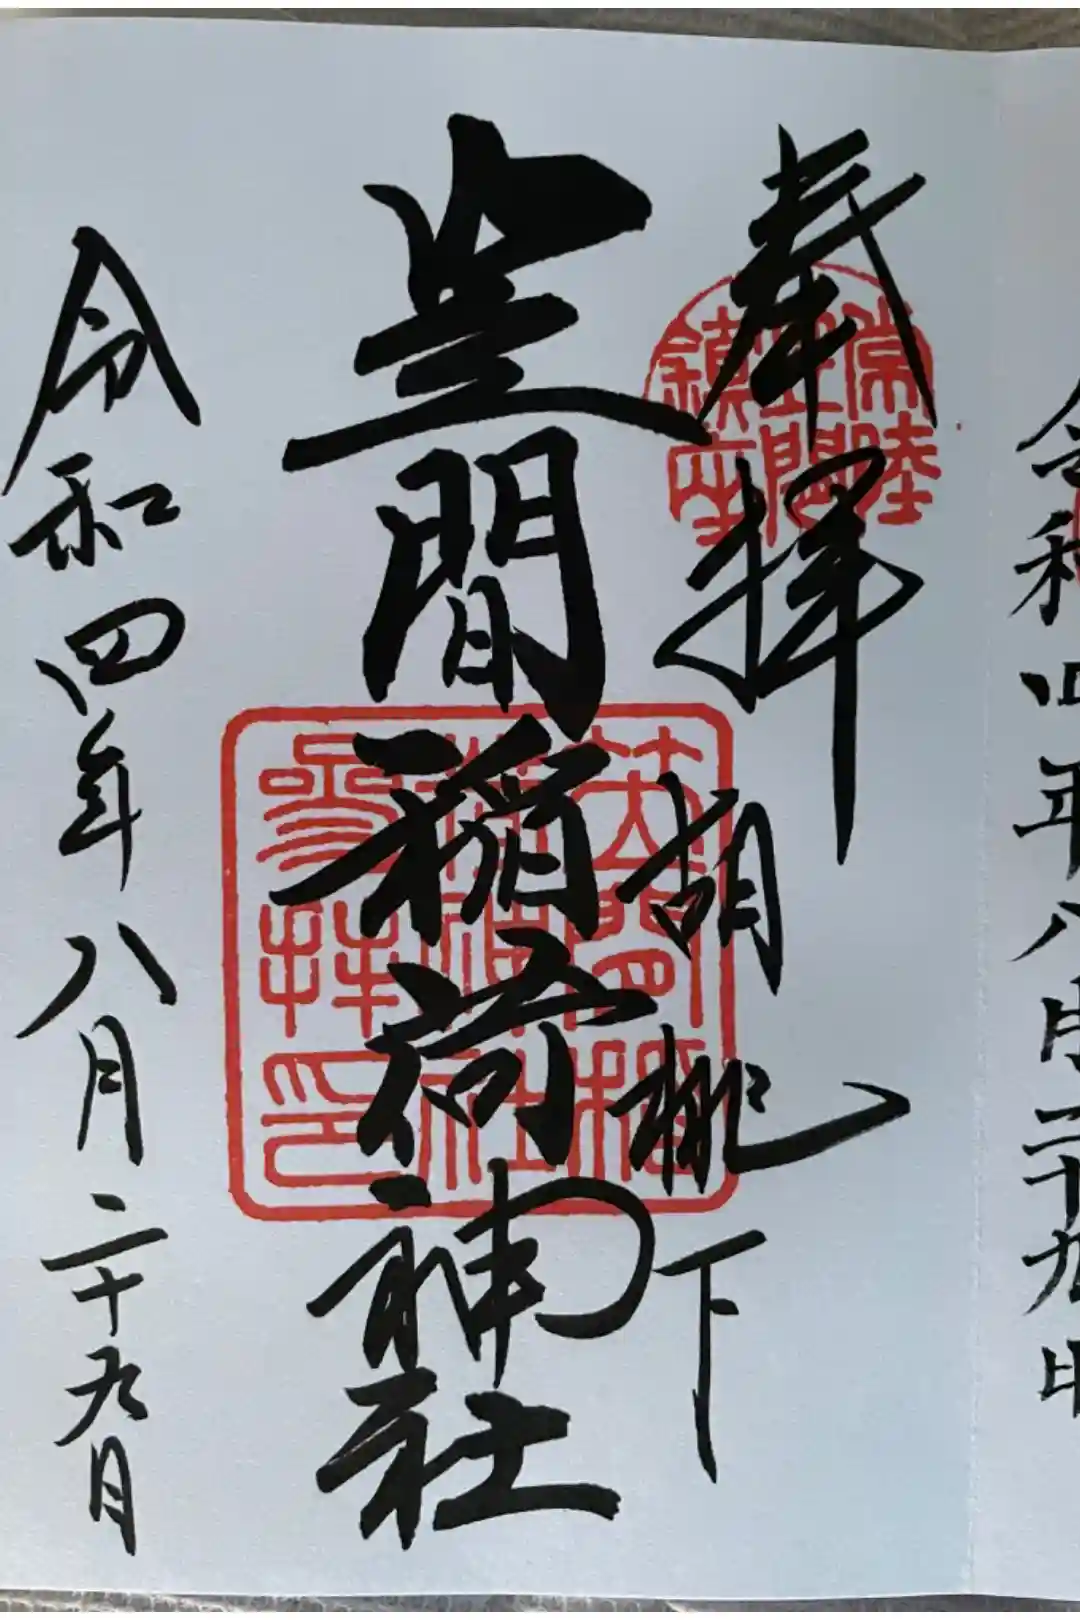 令和四年八月二十九日
奉拝
常陸
笠間
鎮座
胡桃下
笠間稲荷神社
笠間稲
荷神社
参拝印
令和四年八月二十九日